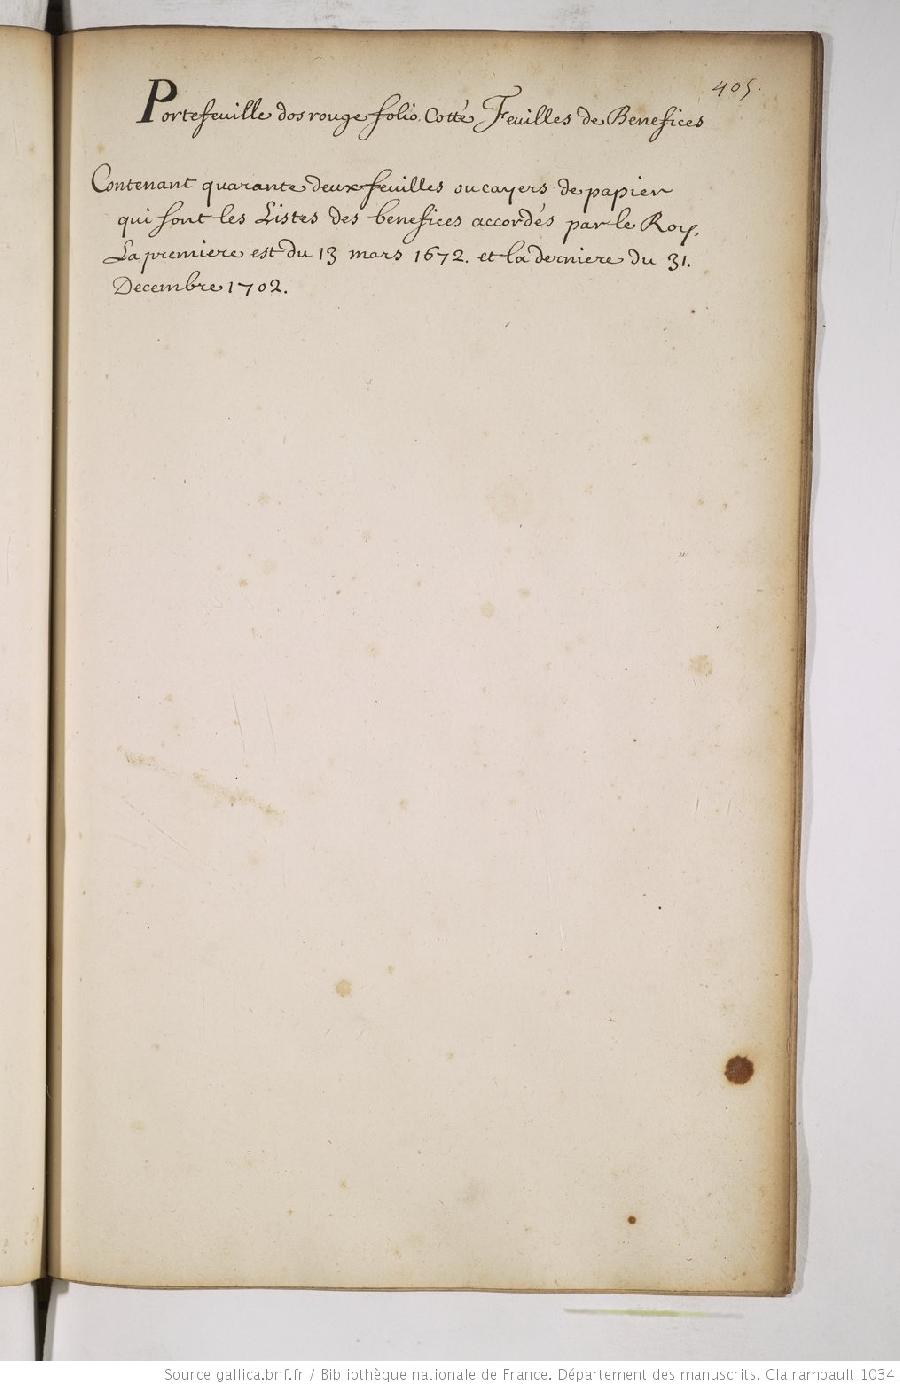 405.
Portefeuille dos rouge folio. Cotté Feuilles de Benefices
Contenant quarante deux feuilles ou cayers de papier
qui sont les Listes des benefices accordés par le Roy,
La premiere est du 13 mars 1672. et la derniere du 31.
Decembre 1702.
Source gallica.bnf.fr / Bibliothèque nationale de France. Département des manuscrits. Clairambault 1034